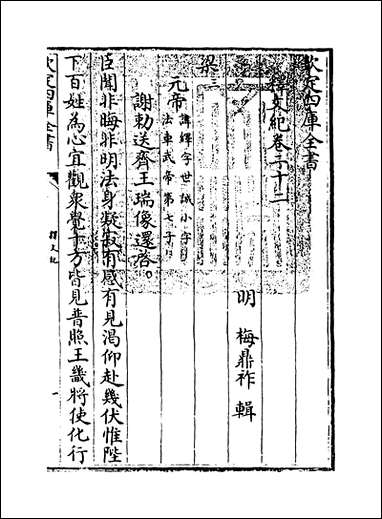 欽定四庫全書
釋文紀卷二十二
明 梅鼎祚 輯
梁三
元帝
諱繹字世誠小字七
法車武帝第七子
謝勅送齊王瑞像還啓
臣聞非晦非明法身凝寂有感有見渴仰赴幾伏惟陛
下百姓為心宜觀衆覺十方皆見普照王畿將使化行
欽定四庫全書
釋文紀
一